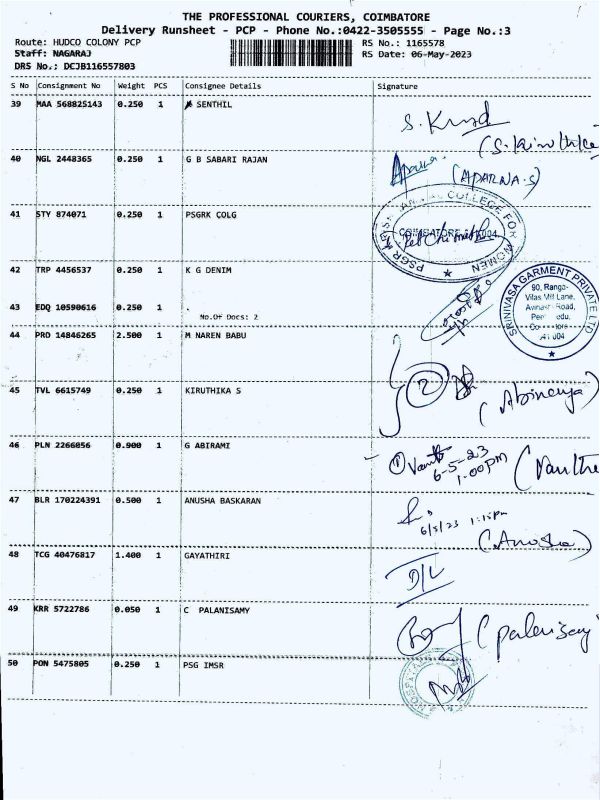 THE PROFESSIONAL COURIERS, COIMBATORE
Delivery Runsheet - PCP - Phone No.:0422-3505555 - Page No.:3
Route: HUDCO COLONY PCP
RS No.: 1165578
Staff: NAGARAJ
RS Date: 06-May-2023
DRS No.: DCJB116557803
S No Consignment No Weight PCS Consignee Details Signature
39 MAA 568825143 0.250 1 SENTHIL
40 NGL 2448365 0.250 1 G B SABARI RAJAN
(APARNA.S)
41 STY 874071 0.250 1 PSGRK COLG
COLLEGE FOR WOMEN
42 TRP 4456537 0.250 1 K G DENIM
SRINIVASA GARMENT PRIVATE LTD
90, Ranga-
Vilas Mill Lane,
Road,
43 EDQ 10590616 0.250 1 .
No.Of Docs: 2
44 PRO 14846265 2.500 1 M NAREN BABU
2
45 TVL 6615749 0.250 1 KIRUTHIKA S
(Abinaya)
46 PLN 2266856 0.900 1 G ABIRAMI
6-5-23
1.00pm
47 BLR 170224391 0.500 1 ANUSHA BASKARAN
6/5/23 1:15pm
(Anusha)
48 TCG 40476817 1.400 1 GAYATHIRI
D/L
49 KRR 5722786 0.050 1 C PALANISAMY
(palanisamy
50 PON 5475805 0.250 1 PSG IMSR